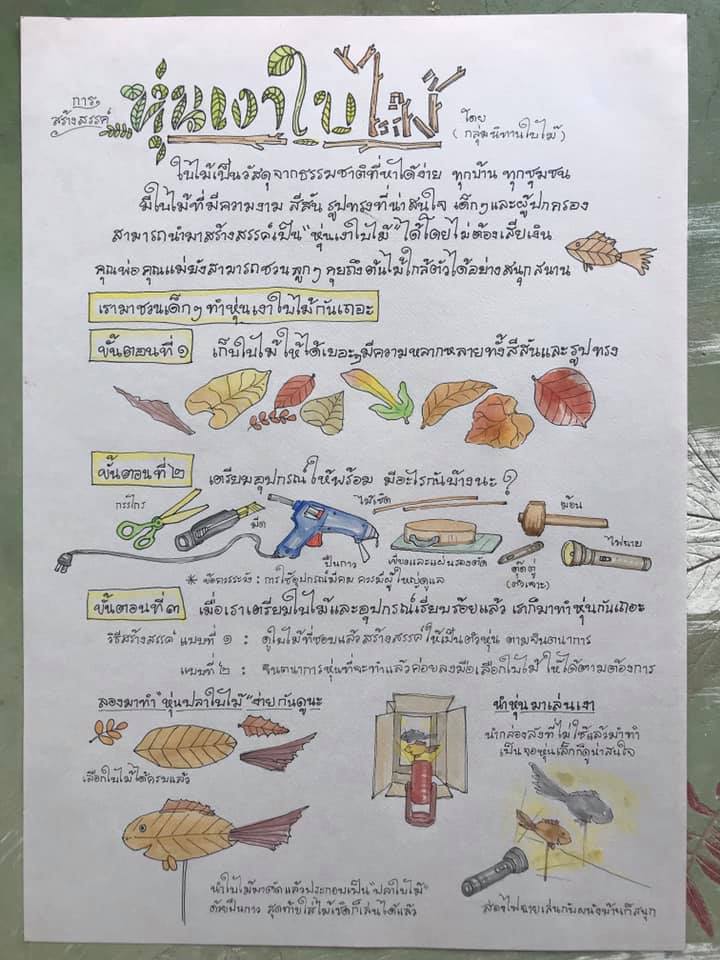 การ
สร้างสรรค์
หุ่นเงาใบไม้
โดย
(กลุ่มนิทานใบไม้)
ใบไม้เป็นวัสดุจากธรรมชาติที่หาได้ง่าย ทุกบ้าน ทุกชุมชน
มีใบไม้ที่มีความงาม สีสัน รูปทรงที่น่าสนใจ เด็กๆและผู้ปกครอง
สามารถนำมาสร้างสรรค์เป็น "หุ่นเงาใบไม้" ได้โดยไม่ต้องเสียเงิน
คุณพ่อ คุณแม่ยังสามารถชวนลูกๆ คุยถึงต้นไม้ใกล้ตัวได้อย่างสนุกสนาน
เรามาชวนเด็กๆ ทำหุ่นเงาใบไม้กันเถอะ
ขั้นตอนที่ ๑ เก็บใบไม้ให้ได้เยอะๆมีความหลากหลายทั้งสีสันและรูปทรง
ขั้นตอนที่ ๒ เตรียมอุปกรณ์ให้พร้อม มีอะไรกันบ้างนะ?
กรรไกร
มีด
ปืนกาว
ไม้เชิด
เขียงและแผ่นรองตัด
ค้อน
ตุ๊ดตู่
(ตัวเจาะ)
ไฟฉาย
* ข้อควรระวัง : การใช้อุปกรณ์มีคม ควรมีผู้ใหญ่ดูแล
ขั้นตอนที่ ๓ เมื่อเราเตรียมใบไม้และอุปกรณ์เรียบร้อยแล้ว เราก็มาทำหุ่นกันเถอะ
วิธีสร้างสรรค์ แบบที่ ๑ : ดูใบไม้ที่ชอบแล้วสร้างสรรค์ให้เป็นตัวหุ่น ตามจินตนาการ
แบบที่ ๒ : จินตนาการหุ่นที่จะทำแล้วค่อยลงมือเลือกใบไม้ ให้ได้ตามต้องการ
ลองมาทำ "หุ่นปลาใบไม้" ง่ายๆกันดูนะ
เลือกใบไม้ได้ครบแล้ว
นำใบไม้มาตัดแล้วประกอบเป็น "ปลาใบไม้"
ด้วยปืนกาว สุดท้ายใส่ไม้เชิดก็เล่นได้แล้ว
นำหุ่นมาเล่นเงา
นำกล่องลังที่ไม่ใช้แล้วมาทำ
เป็นจอหุ่นเล็กก็ดูน่าสนใจ
ส่องไฟฉายเล่นกับผนังบ้านก็สนุก